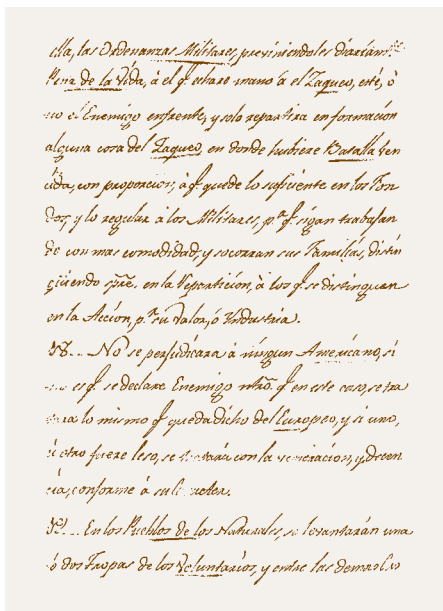 ella, las Ordenanzas Militares, previniendoles diariam.te
Pena de la Vida, à el q.e echare mano à el Zaqueo, esté, ò
no el Enemigo enfrente, y solo repartirà en formación
alguna cosa del Zaqueo, en donde hubiere Batalla ven
cida, con proporción, à q.e quede lo suficiente en los Fon
dos, y lo regular à los Militares, p.a q.e sigan trabajan
do con mas comodidad, y socorran sus Familias, distin
güiendo spre. en la Repartición, à los q.e se distinguan
en la Acción, p.r su valor, ò Yndustria.
No se perjudicarà à ningun Americano, si
es q.e se declare Enemigo ntro. q.e en este caso, se tra
tara lo mismo q.e queda dicho del Europeo, y si uno,
ù otro fuere leso, se tratará con la veneración, y decen
cia, conforme à su
En los Pueblos de los Naturales, se levantarán una
ò dos Tropas de los Voluntarios, y entre las demas